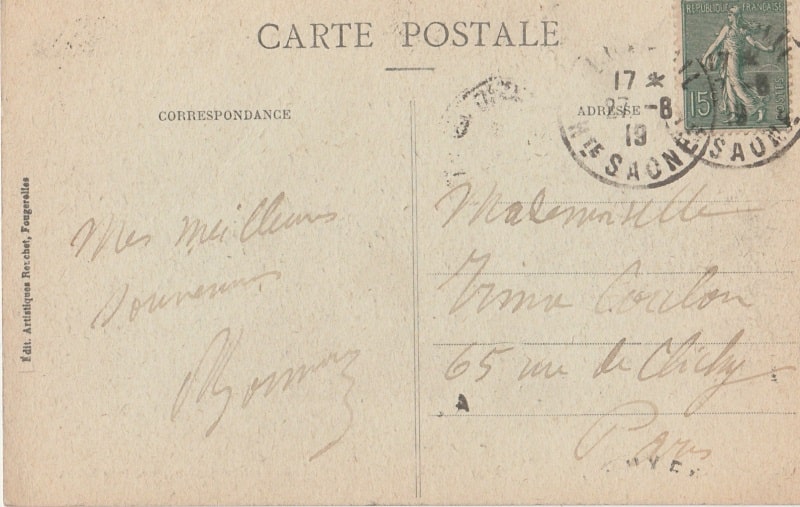 CARTE POSTALE
CORRESPONDANCE
ADRESSE
RÉPUBLIQUE FRANÇAISE
15
17 *
27 -8
19
Hte SAONE
SAONE
Mes meilleurs
souvenirs
Mademoiselle
Coulon
65 rue de Clichy
Paris
Édit. Artistiques Reuchet, Fougerolles